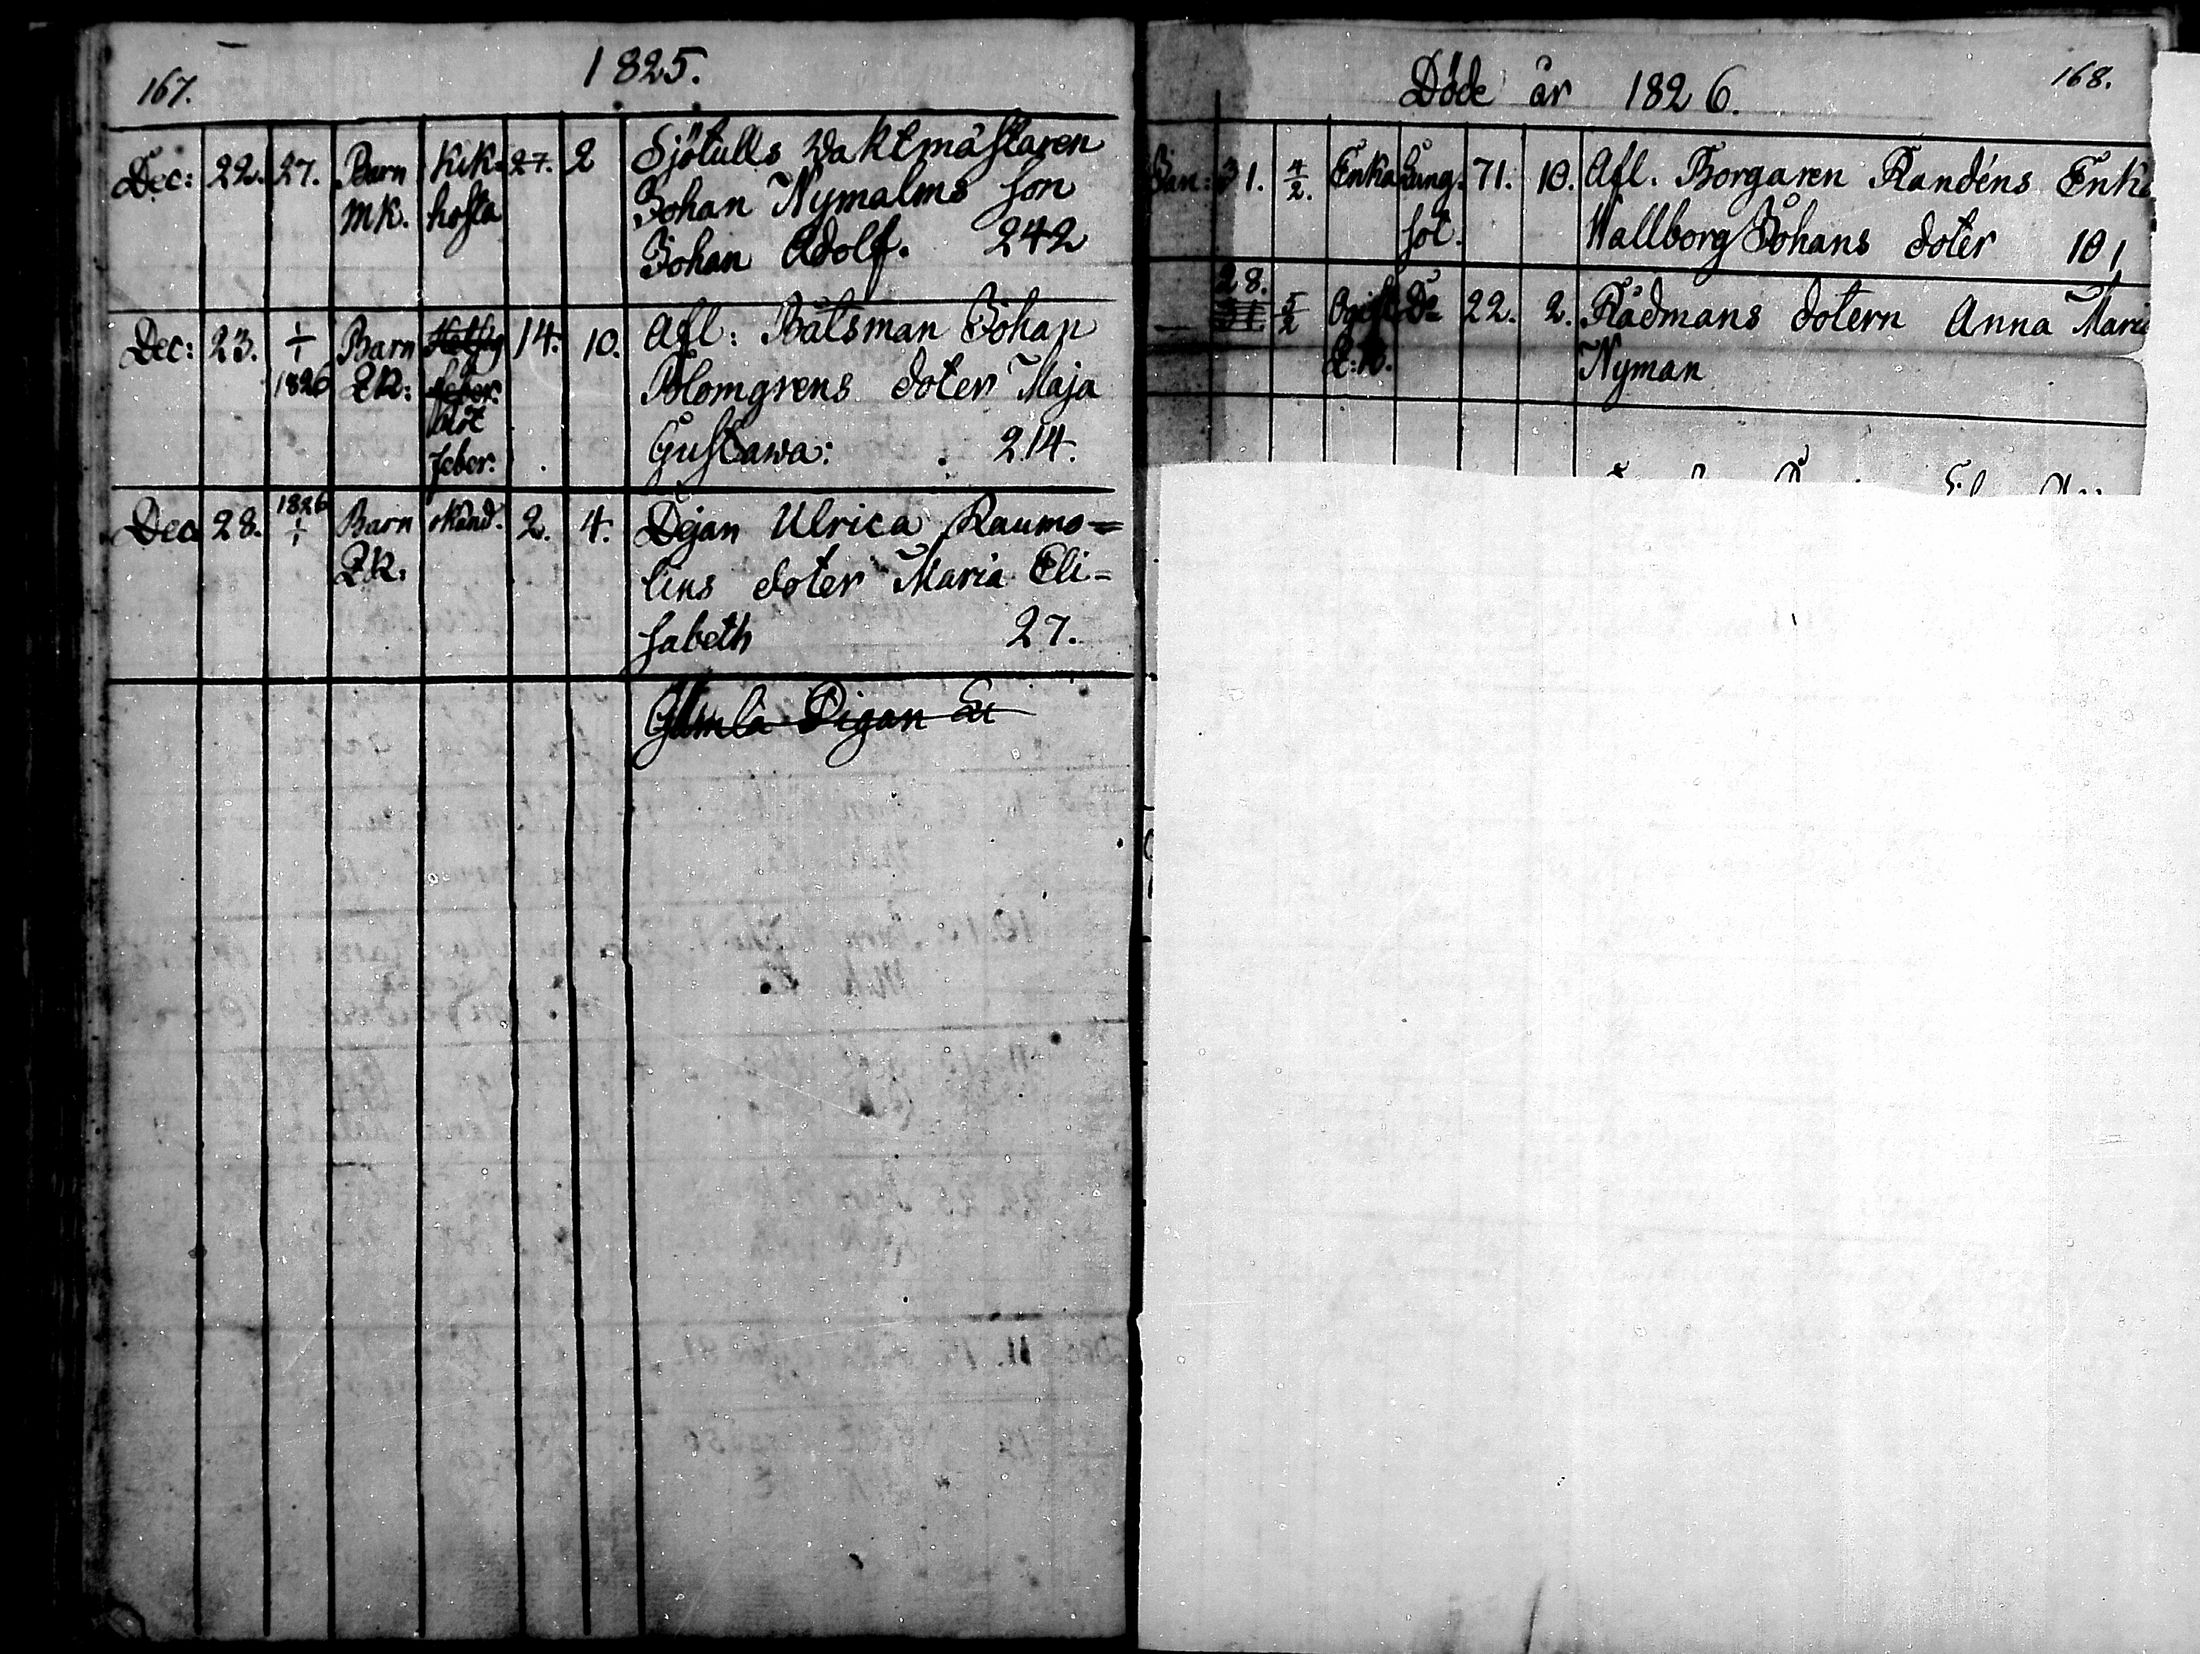 167.
1825.
Dec: 22. 27. Barn Kik- 27. 2 Sjötulls Waktmästaren
mk. hosta Johan Nymalms son
Johan Adolf. 242
Dec: 23. 1/1 Barn 14. 10. Afl: Båtsman Johan
1826 Qk: feber. Blomgrens doter Maja
Röt Gustawa: 214.
feber.
Dec 28. 1826 Barn okänd. 2. 4. Dejan Ulrica Raumo=
1/1 Qk. lins doter Maria Eli=
sabeth 27.
Gamla Pigan
Döde år 1826.
168.
Jan: 31. 4/2. Enka Lung- 71. 10. Afl. Borgaren Randéns Enka
sot. Wallborg Johans doter 101
28.
31 5/2 Ogift Do 22. 2. Rådmans dotern Anna Maria
Q:k. Nyman